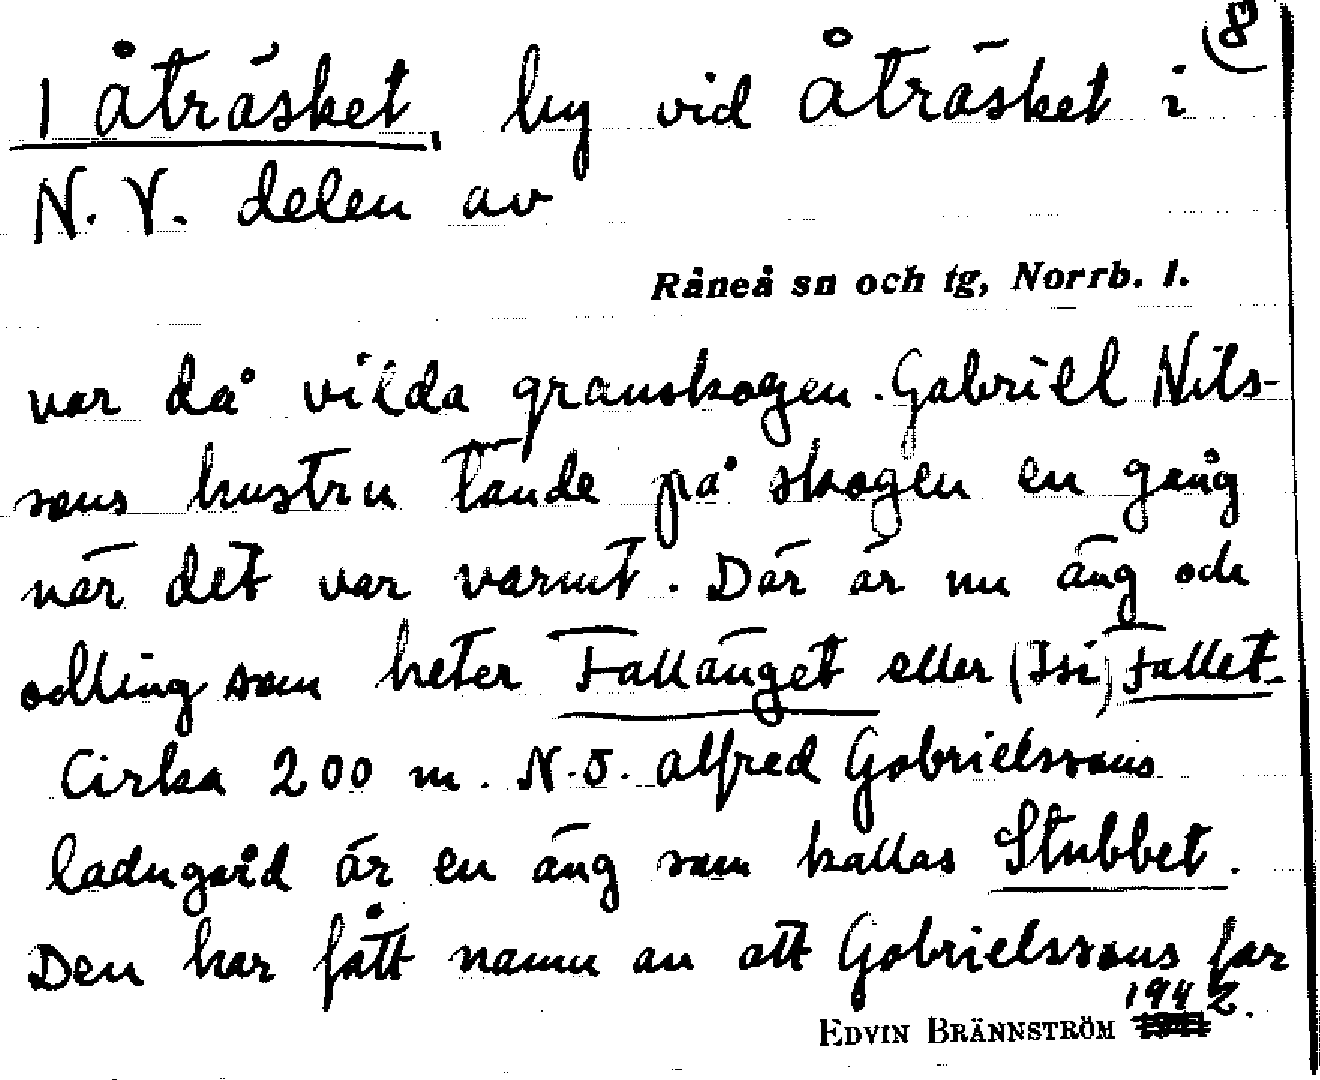 8
1 Åträsket, by vid Åträsket i
N. V. delen av
Råneå sn och tg, Norrb. l.
var då vilda granskogen. Gabriel Nils-
sons hustru tände på skogen en gång
när det var varmt. Där är nu äng och
odling som heter Fallänget eller (Isi) Fallet.
Cirka 200 m. N.Ö. Alfred Gabrielssons
ladugård är en äng som kallas Stubbet.
Den har fått namn av att Gabrielssons far
EDVIN BRÄNNSTRÖM 1942.